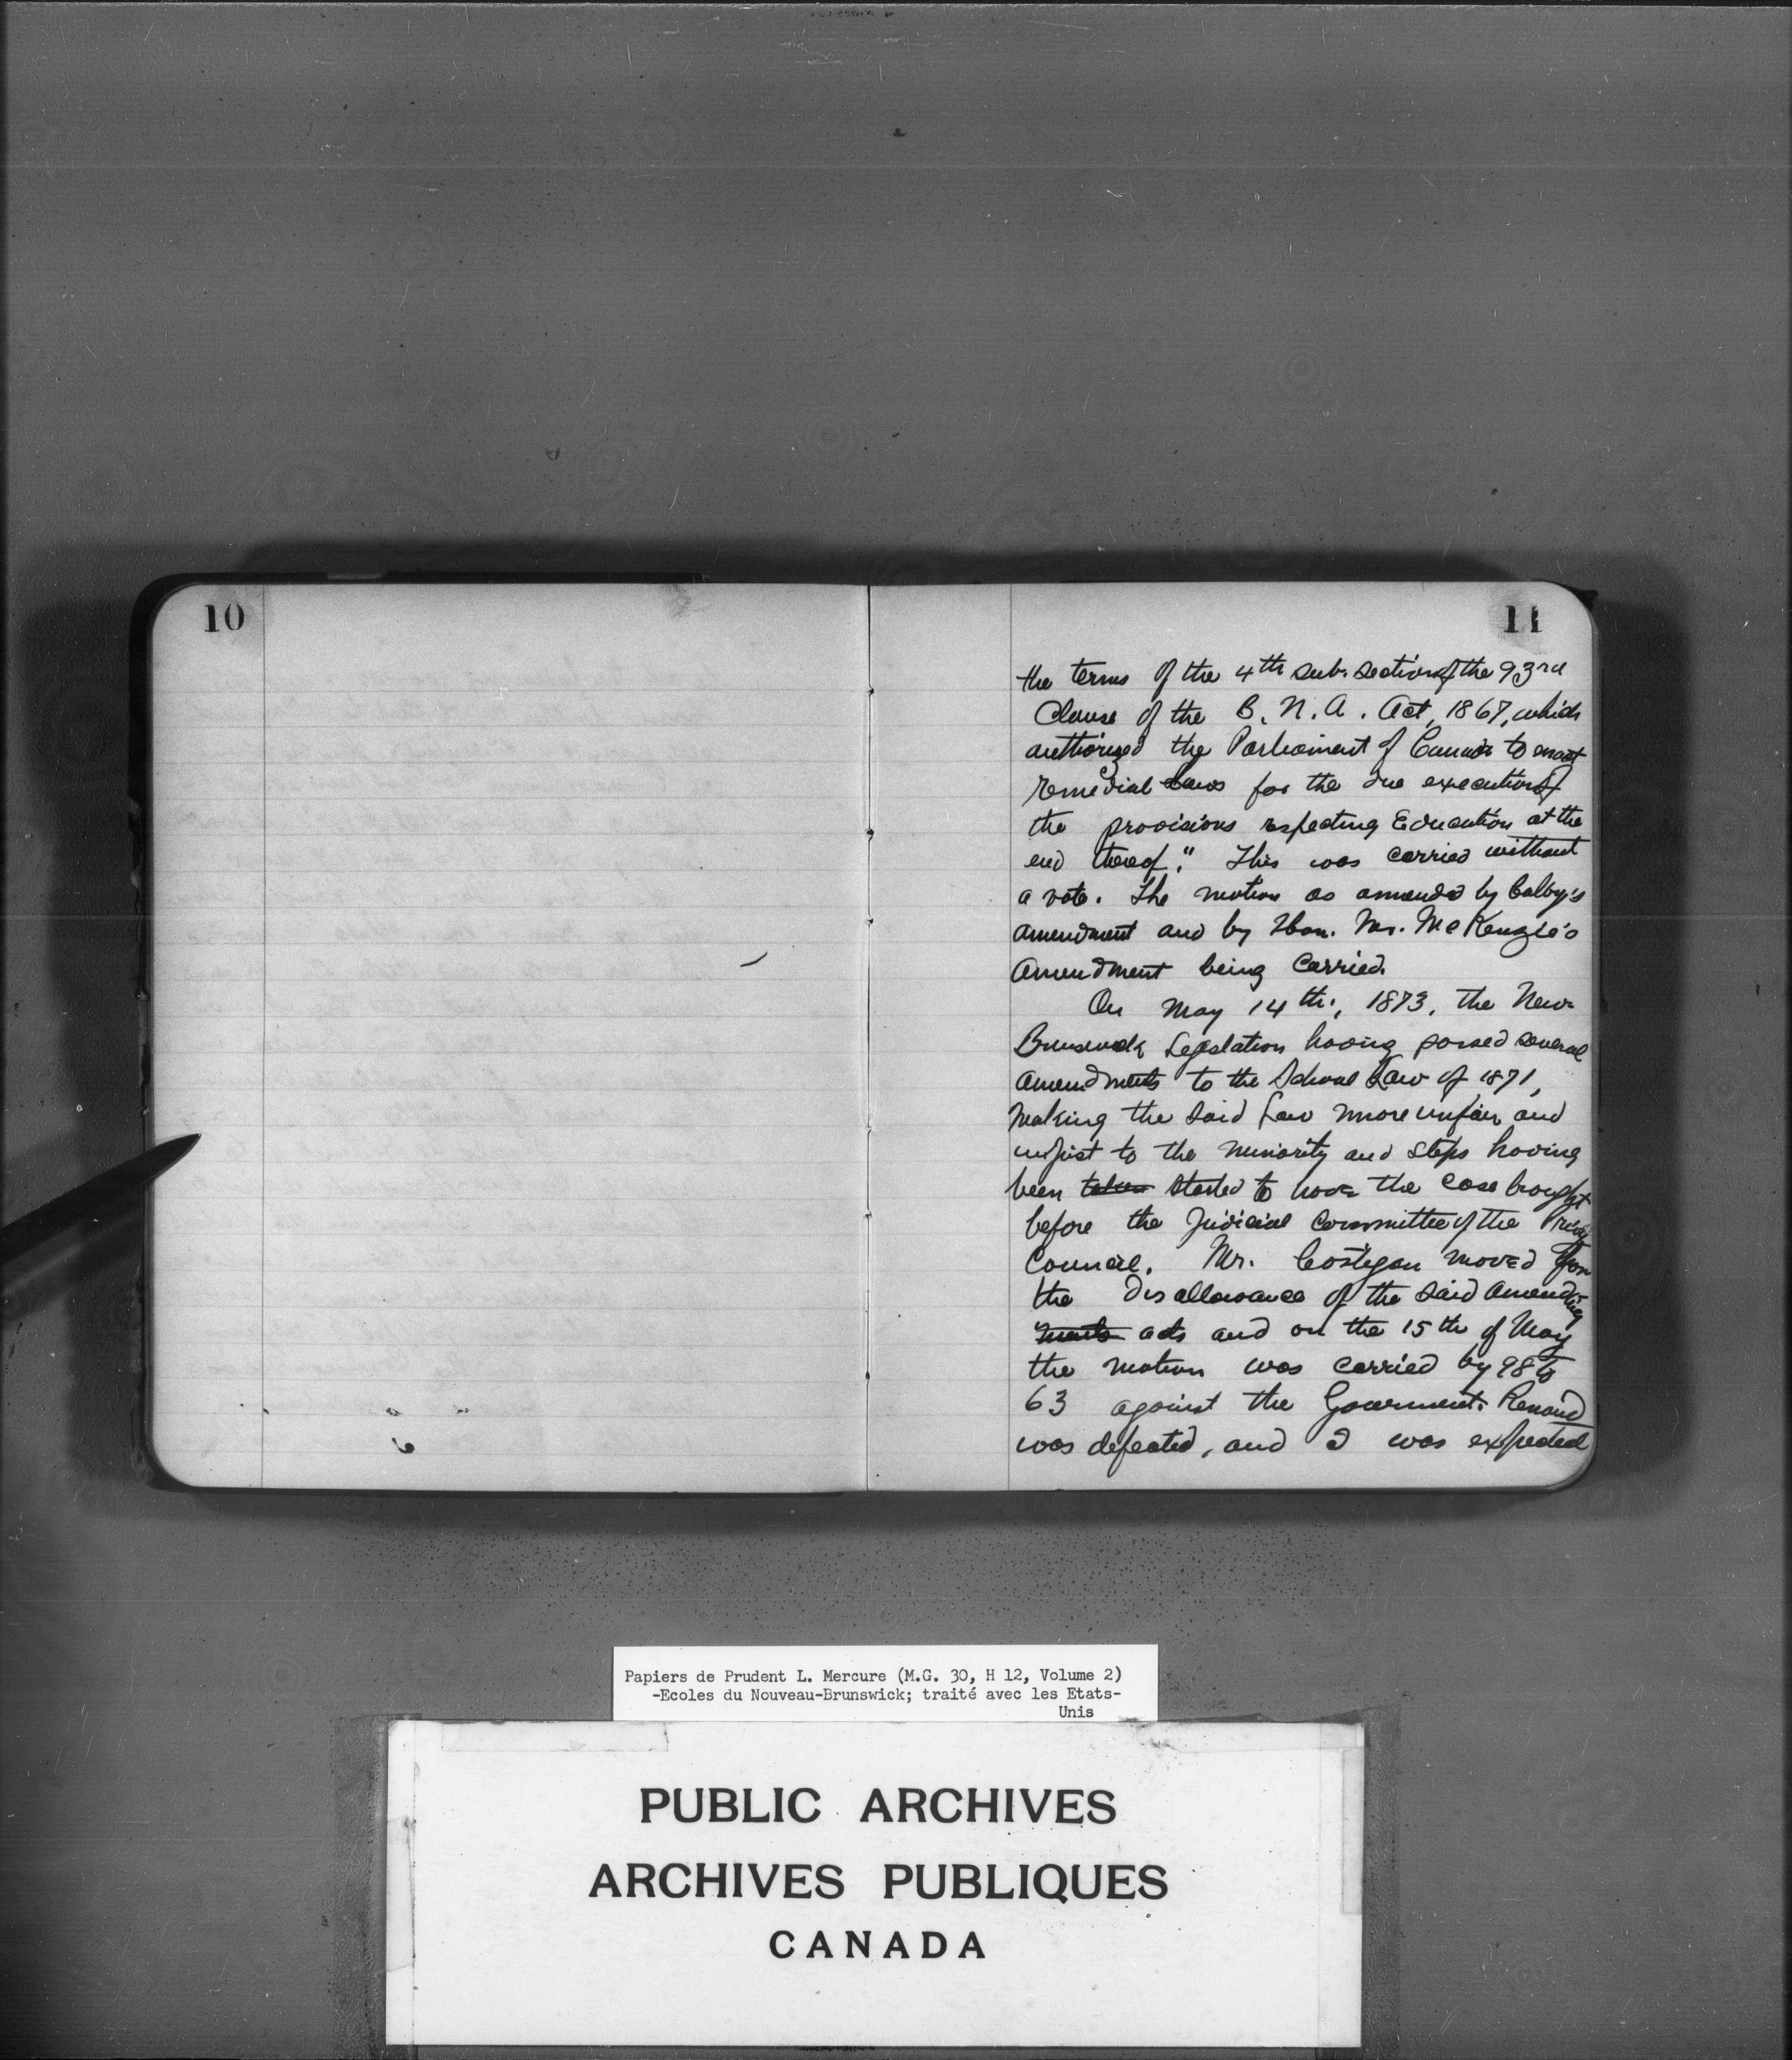 10
11
the terms of the 4th sub. section of the 93rd
Clause of the B. N. A. Act, 1867, which
authorized the Parliament of Canada to enact
remedial Laws for the due execution of
the provisions respecting Education at the
end thereof." This was carried without
a vote. The motion as amended by Colby's
amendment and by Hon. Mr. McKenzie's
Amendment being Carried.
On May 14th., 1873, the New-
Brunswick Legislation having passed several
amendments to the School Law of 1871,
Making the said Law more unfair and
unjust to the minority and steps having
been taken started to have the case brought
before the Judicial Committee of the Privy
Council. Mr. Costigan moved for
the Disallowance of the said Amending
ments acts and on the 15th of May
the motion was carried by 98 to
63 against the Goverment. Renaud
was defeated, and I was expected
Papiers de Prudent L. Mercure (M.G. 30, H 12, Volume 2)
-Ecoles du Nouveau-Brunswick; traité avec les Etats-
Unis
PUBLIC ARCHIVES
ARCHIVES PUBLIQUES
CANADA